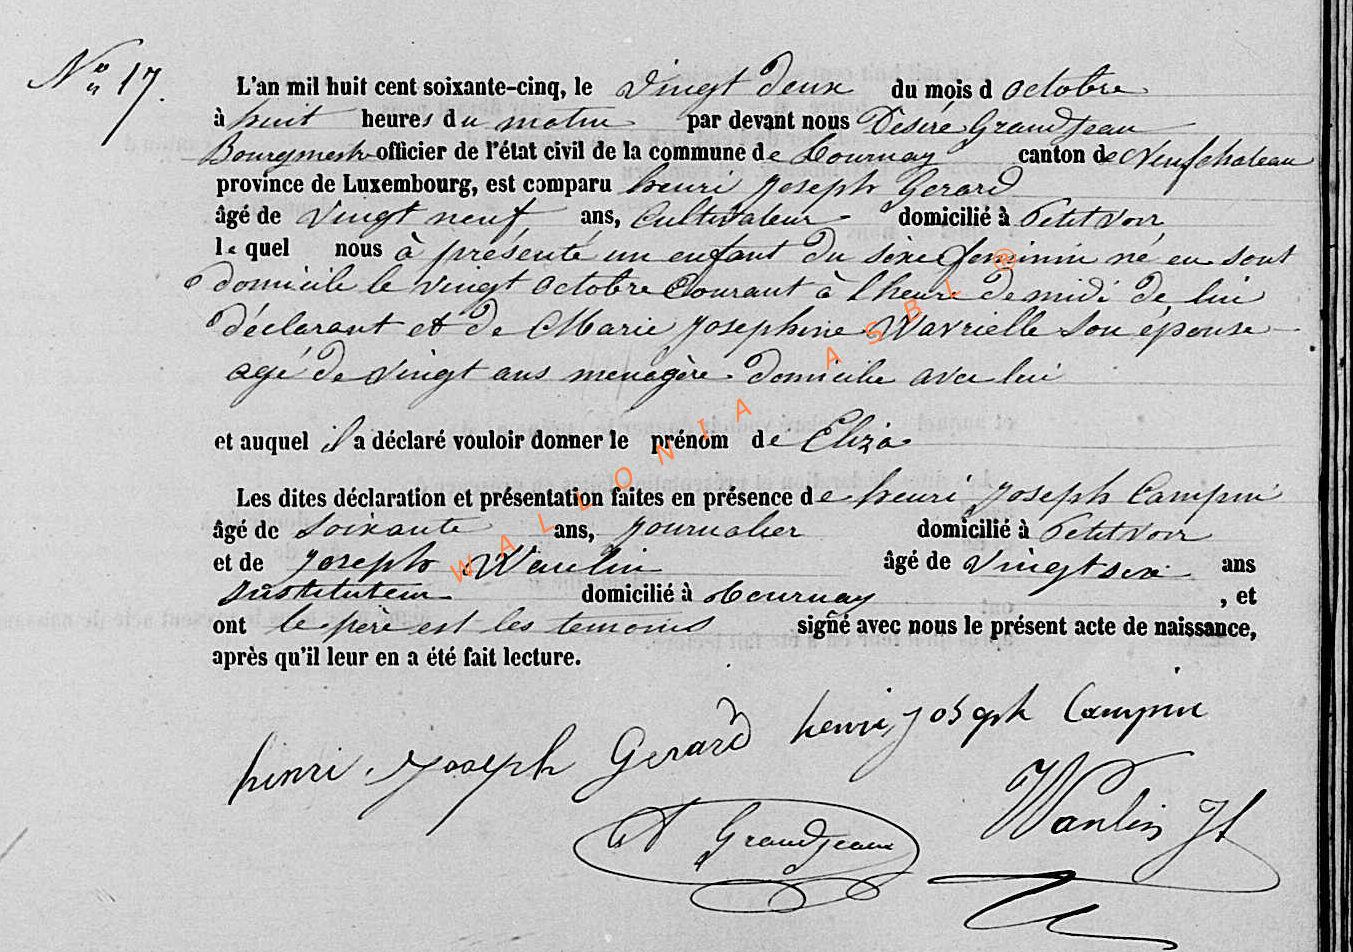 No 17.
L'an mil huit cent soixante-cinq, le vingt deux du mois d octobre
à huit heures du matin par devant nous Désiré Grandjean
Bourgmestre officier de l'état civil de la commune de Tournay canton de Neufchateau
province de Luxembourg, est comparu henri Joseph Gerard
âgé de vingt neuf ans, Cultivateur domicilié à Petitvoir
lequel nous à présenté un enfant du sexe feminin né en sont
domicile le vingt octobre Courant à lheure de midi de lui
déclarant et de Marie Josephine Wavrielle son épouse
agé de vingt ans menagère domicilie avec lui
et auquel il a déclaré vouloir donner le prénom de Eliza
Les dites déclaration et présentation faites en présence de henri Joseph Campin
âgé de soixante ans, journalier domicilié à Petitvoir
et de Joseph Wanlin âgé de vingt six ans
Instituteur domicilié à tournay , et
ont le père est les temoins signé avec nous le présent acte de naissance,
après qu'il leur en a été fait lecture.
henri Joseph Gerard henri Joseph Campin
Grandjean Wanlin Jh
WALLONIA ASBL ®